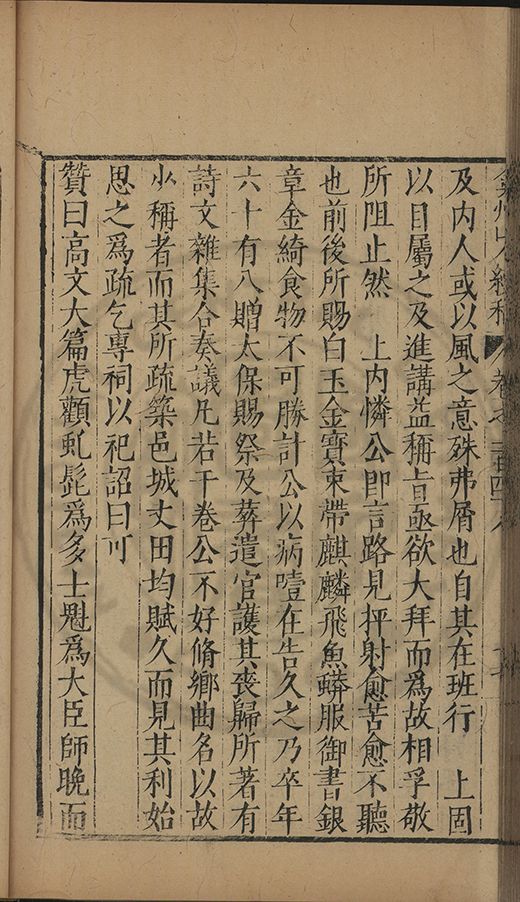 弇州山人續稿 卷之一百四八
及内人或以風之意殊弗屑也自其在班行 上固
以目屬之及進講益稱旨亟欲大拜而爲故相孚敬
所阻止然 上内憐公即言路見抨射愈苦愈不聽
也前後所賜白玉金寶束帶麒麟飛魚蟒服御書銀
章金綺食物不可勝計公以病噎在告久之乃卒年
六十有八贈太保賜祭及葬遣官護其喪歸所著有
詩文雜集合奏議凡若干卷公不好脩鄉曲名以故
少稱者而其所疏築邑城丈田均賦久而見其利始
思之爲疏乞專祠以祀詔曰可
贊曰高文大篇虎顴虬髭爲多士魁爲大臣師晩而